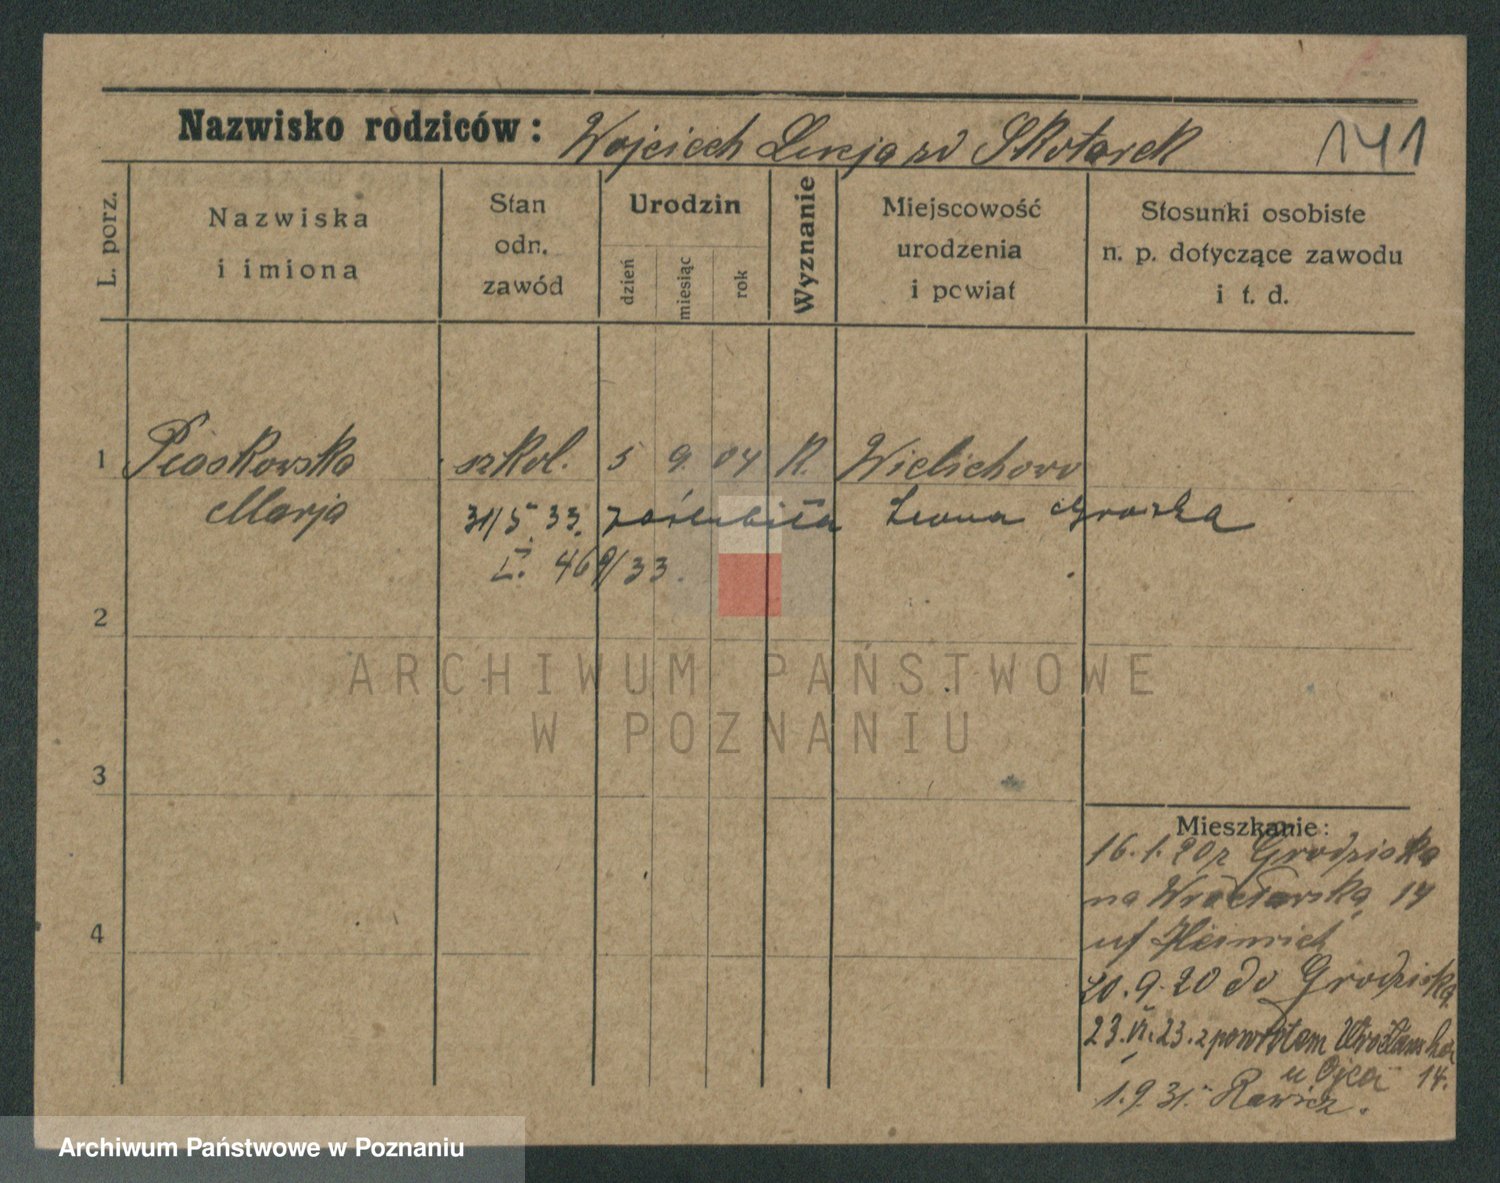 Nazwisko rodziców: Wojciech Lucja zd Skotarek 141
L. porz.
Nazwiska
i imiona
Stan
odn.
zawód
Urodzin
dzień
miesiąc
rok
Wyznanie
Miejscowość
urodzenia
i powiat
Stosunki osobiste
n. p. dotyczące zawodu
i t. d.
1 Piaskowska szkol. 5 9. 04 K. Wielichowo
Marja
31/5 33. zaślubiła Leona
L. 469/33.
2
ARCHIWUM PAŃSTWOWE
W POZNANIU
3
4
Mieszkanie:
16.1.20 z Grodziska
na Wrocławską 14
u/ Heinrich
20.9.20 do Grodziska
23.VI.23. z powrotem Wrocławska
u Ojca 14.
1.9.31. Rawicz.
Archiwum Państwowe w Poznaniu